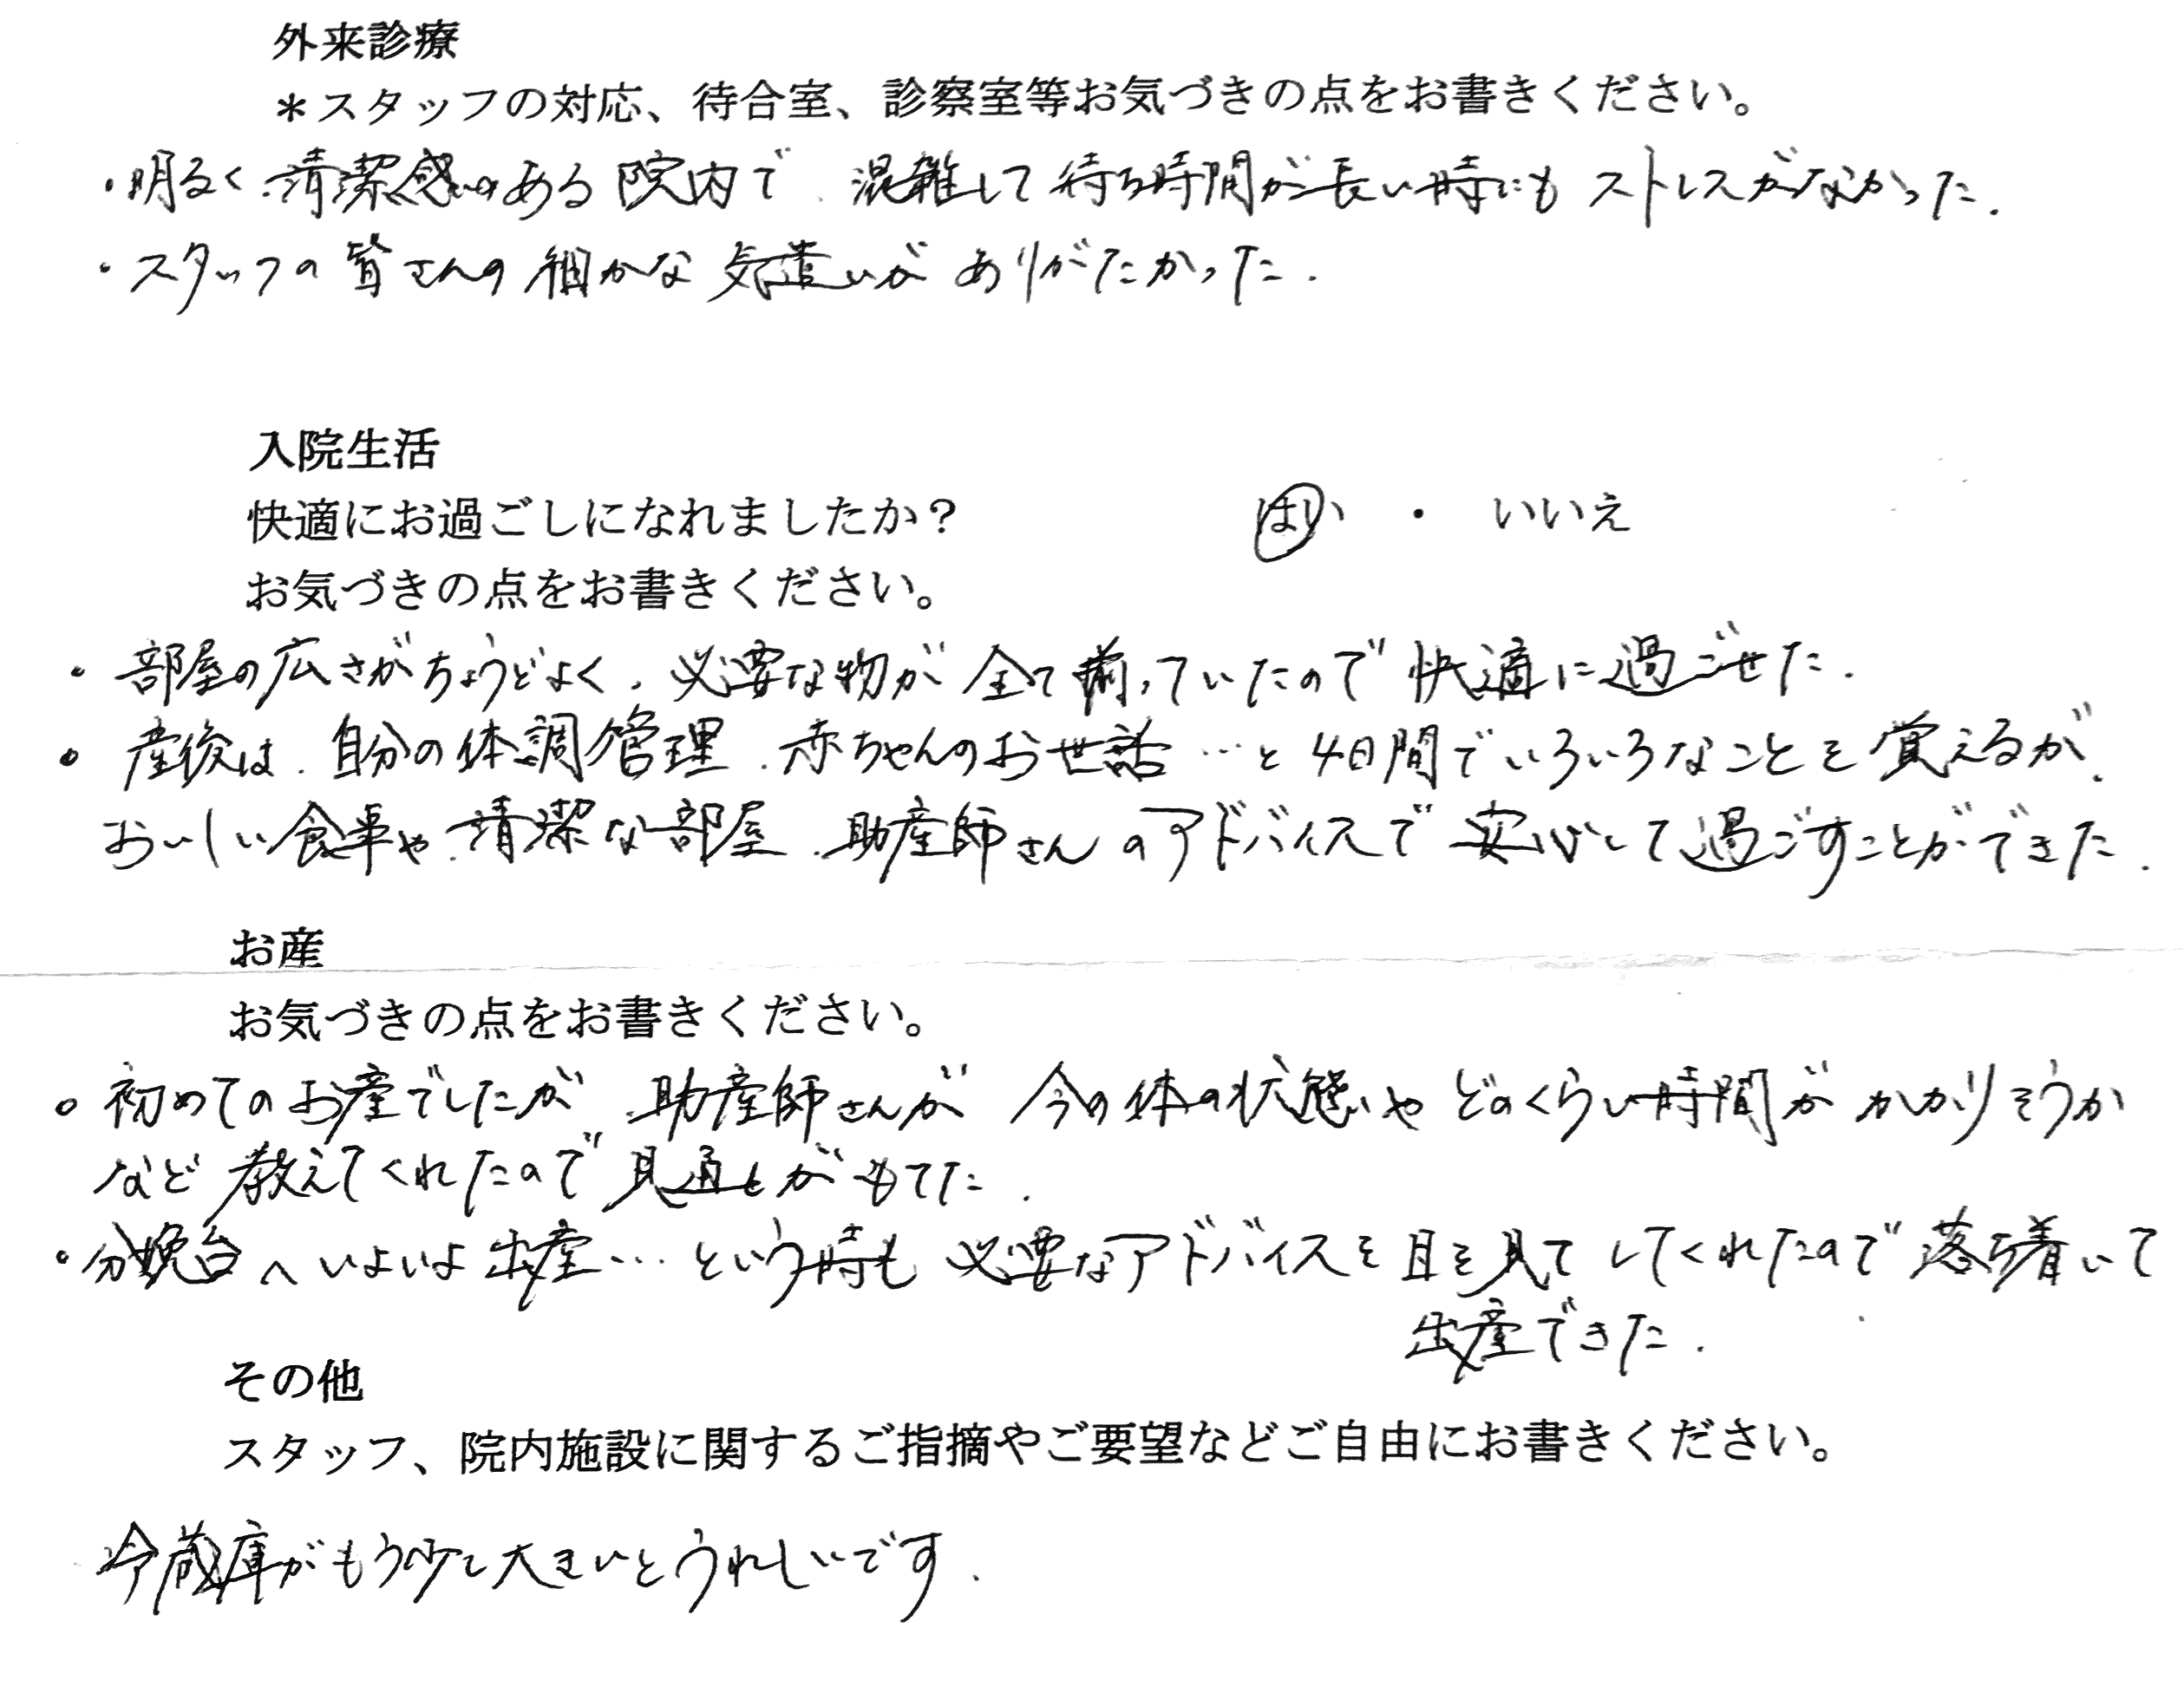 外来診療
＊スタッフの対応、待合室、診察室等お気づきの点をお書きください。
・明るく清潔感のある院内で、混雑して待ち時間が長い時にもストレスがなかった。
・スタッフの皆さんの細かな気遣いがありがたかった。
入院生活
快適にお過ごしになれましたか？　はい　・　いいえ
お気づきの点をお書きください。
・部屋の広さがちょうどよく、必要な物が全て揃っていたので快適に過ごせた。
・産後は、自分の体調管理、赤ちゃんのお世話…と4日間でいろいろなことを覚えるが、
おいしい食事や、清潔な部屋、助産師さんのアドバイスで安心して過ごすことができた。
お産
お気づきの点をお書きください。
・初めてのお産でしたが、助産師さんが今の体の状態やどのくらい時間がかかりそうか
など教えてくれたので見通しがもてた。
・分娩台へいよいよ出産…という時も必要なアドバイスを目を見てしてくれたので落ち着いて
出産できた。
その他
スタッフ、院内施設に関するご指摘やご要望などご自由にお書きください。
冷蔵庫がもう少し大きいとうれしいです。